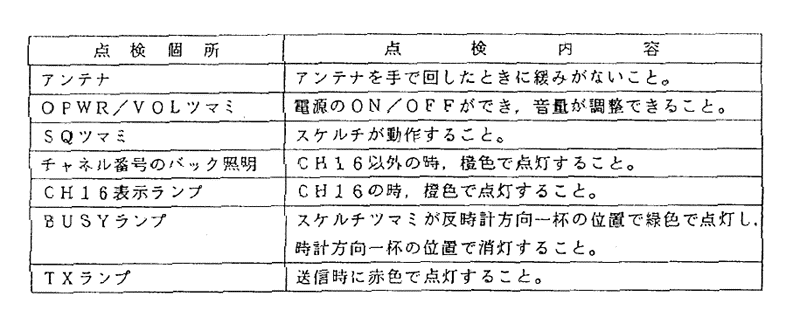 点検個所 点検内容
アンテナ アンテナを手で回したときに緩みがないこと。
OPWR/VOLツマミ 電源のON/OFFができ,音量が調整できること。
SQツマミ スケルチが動作すること。
チャネル番号のバック照明 CH16以外の時,橙色で点灯すること。
CH16表示ランプ CH16の時,橙色で点灯すること。
BUSYランプ スケルチツマミが反時計方向一杯の位置で緑色で点灯し,
時計方向一杯の位置で消灯すること。
TXランプ 送信時に赤色で点灯すること。